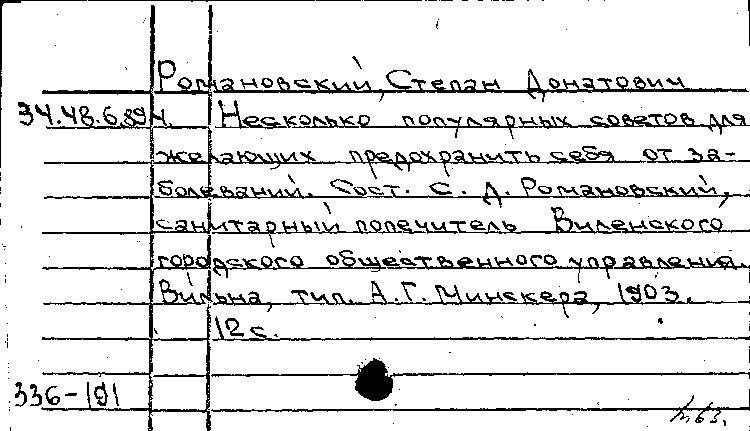 Романовский, Степан Донатович
34.48.6.89ч. Несколько популярных советов для
желающих предохранить себя от за-
болеваний. Сост. С. Д. Романовский,
санитарный попечитель Виленского
городского общественного управления.
Вильна, тип. А. Г. Минскера, 1903.
12 с.
336-191